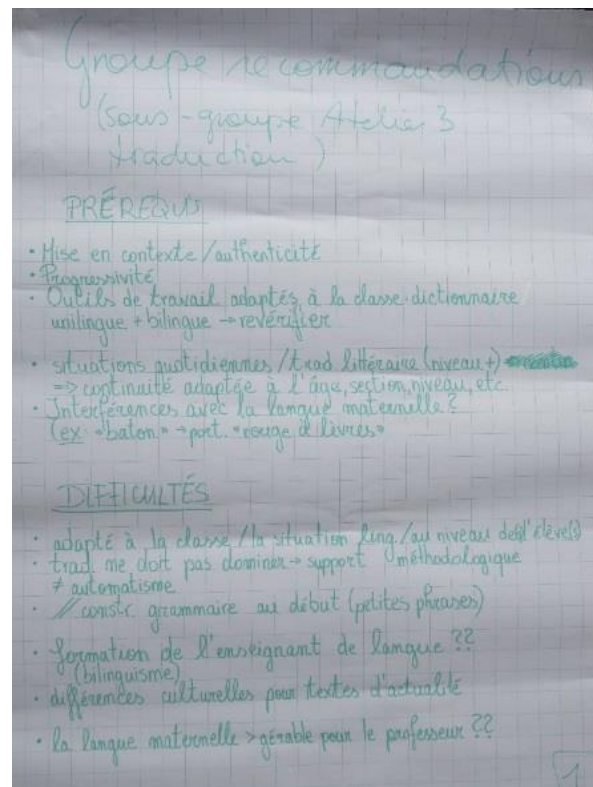 Groupe recommandations
(sous-groupe Atelier 3
traduction)
PRÉREQUIS
• Mise en contexte / authenticité
• Progressivité
• Outils de travail adaptés à la classe: dictionnaire
unilingue + bilingue → revérifier
• situations quotidiennes / trad littéraire (niveau +)
=> continuité adaptée à l'âge, section, niveau, etc.
• Interférences avec la langue maternelle?
(ex: "baton" → port. "rouge à lèvres"
DIFFICULTÉS
• adapté à la classe / la situation ling / au niveau de l'élève(s)
• trad ne doit pas dominer → support méthodologique
≠ automatisme
• // constr. grammaire au début (petites phrases)
• formation de l'enseignant de langue ??
(bilinguisme)
• différences culturelles pour textes d'actualité
• la langue maternelle > gérable pour le professeur ??
1